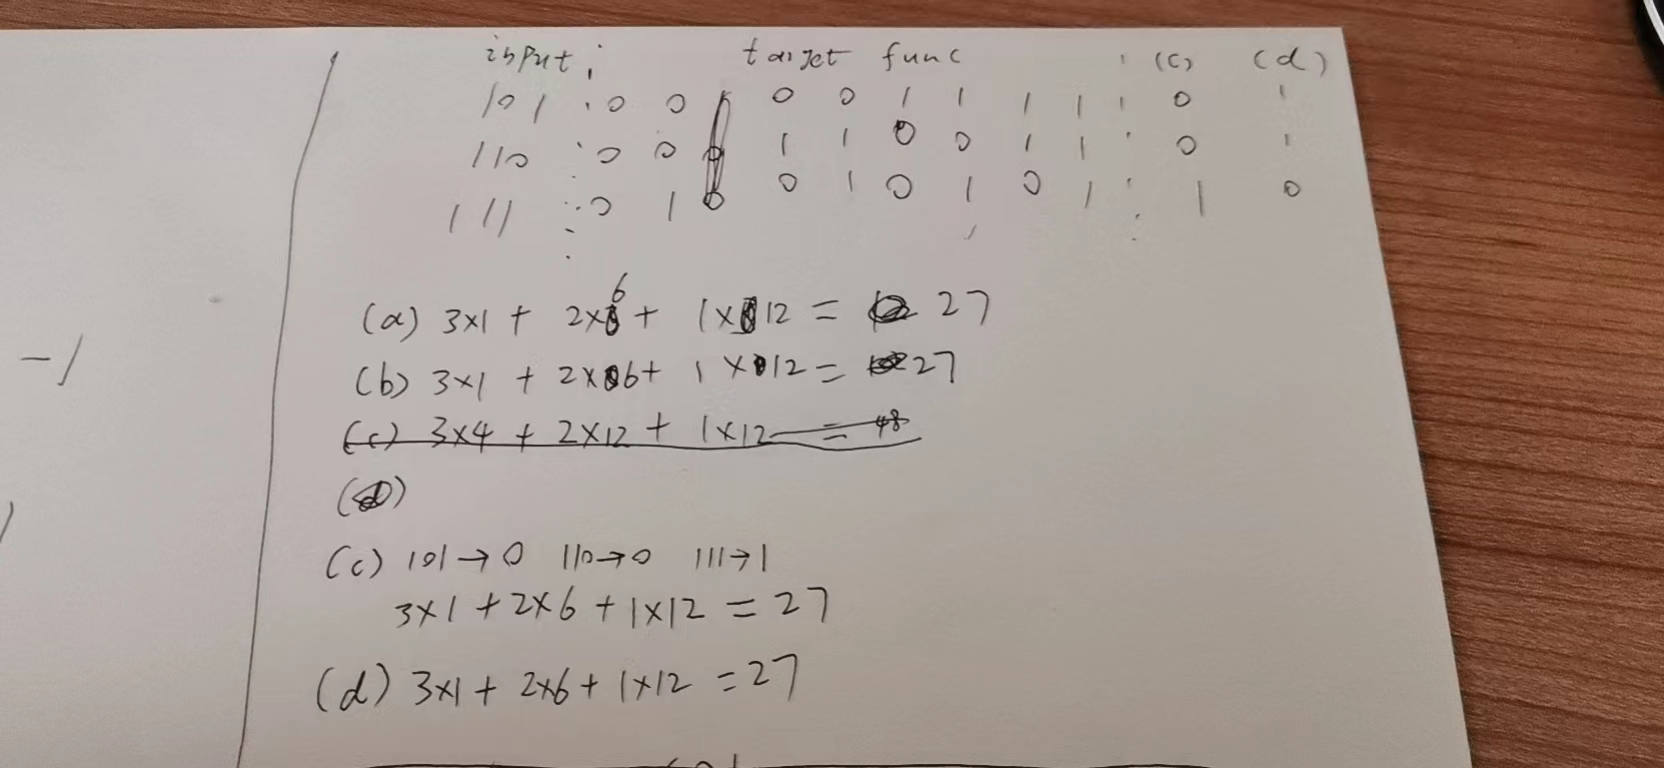 input : target func : (c) (d)
101 : 0 0 0 0 1 1 1 1 : 0 1
110 : 0 0 1 1 0 0 1 1 : 0 1
111 : 0 1 0 1 0 1 0 1 : 1 0
(a) 3x1 + 2x6 + 1x12 = 27
(b) 3x1 + 2x6 + 1x12 = 27
(c) 3x4 + 2x12 + 1x12 = 48
(d)
(c) 101→0 110→0 111→1
3x1 + 2x6 + 1x12 = 27
(d) 3x1 + 2x6 + 1x12 = 27
-1